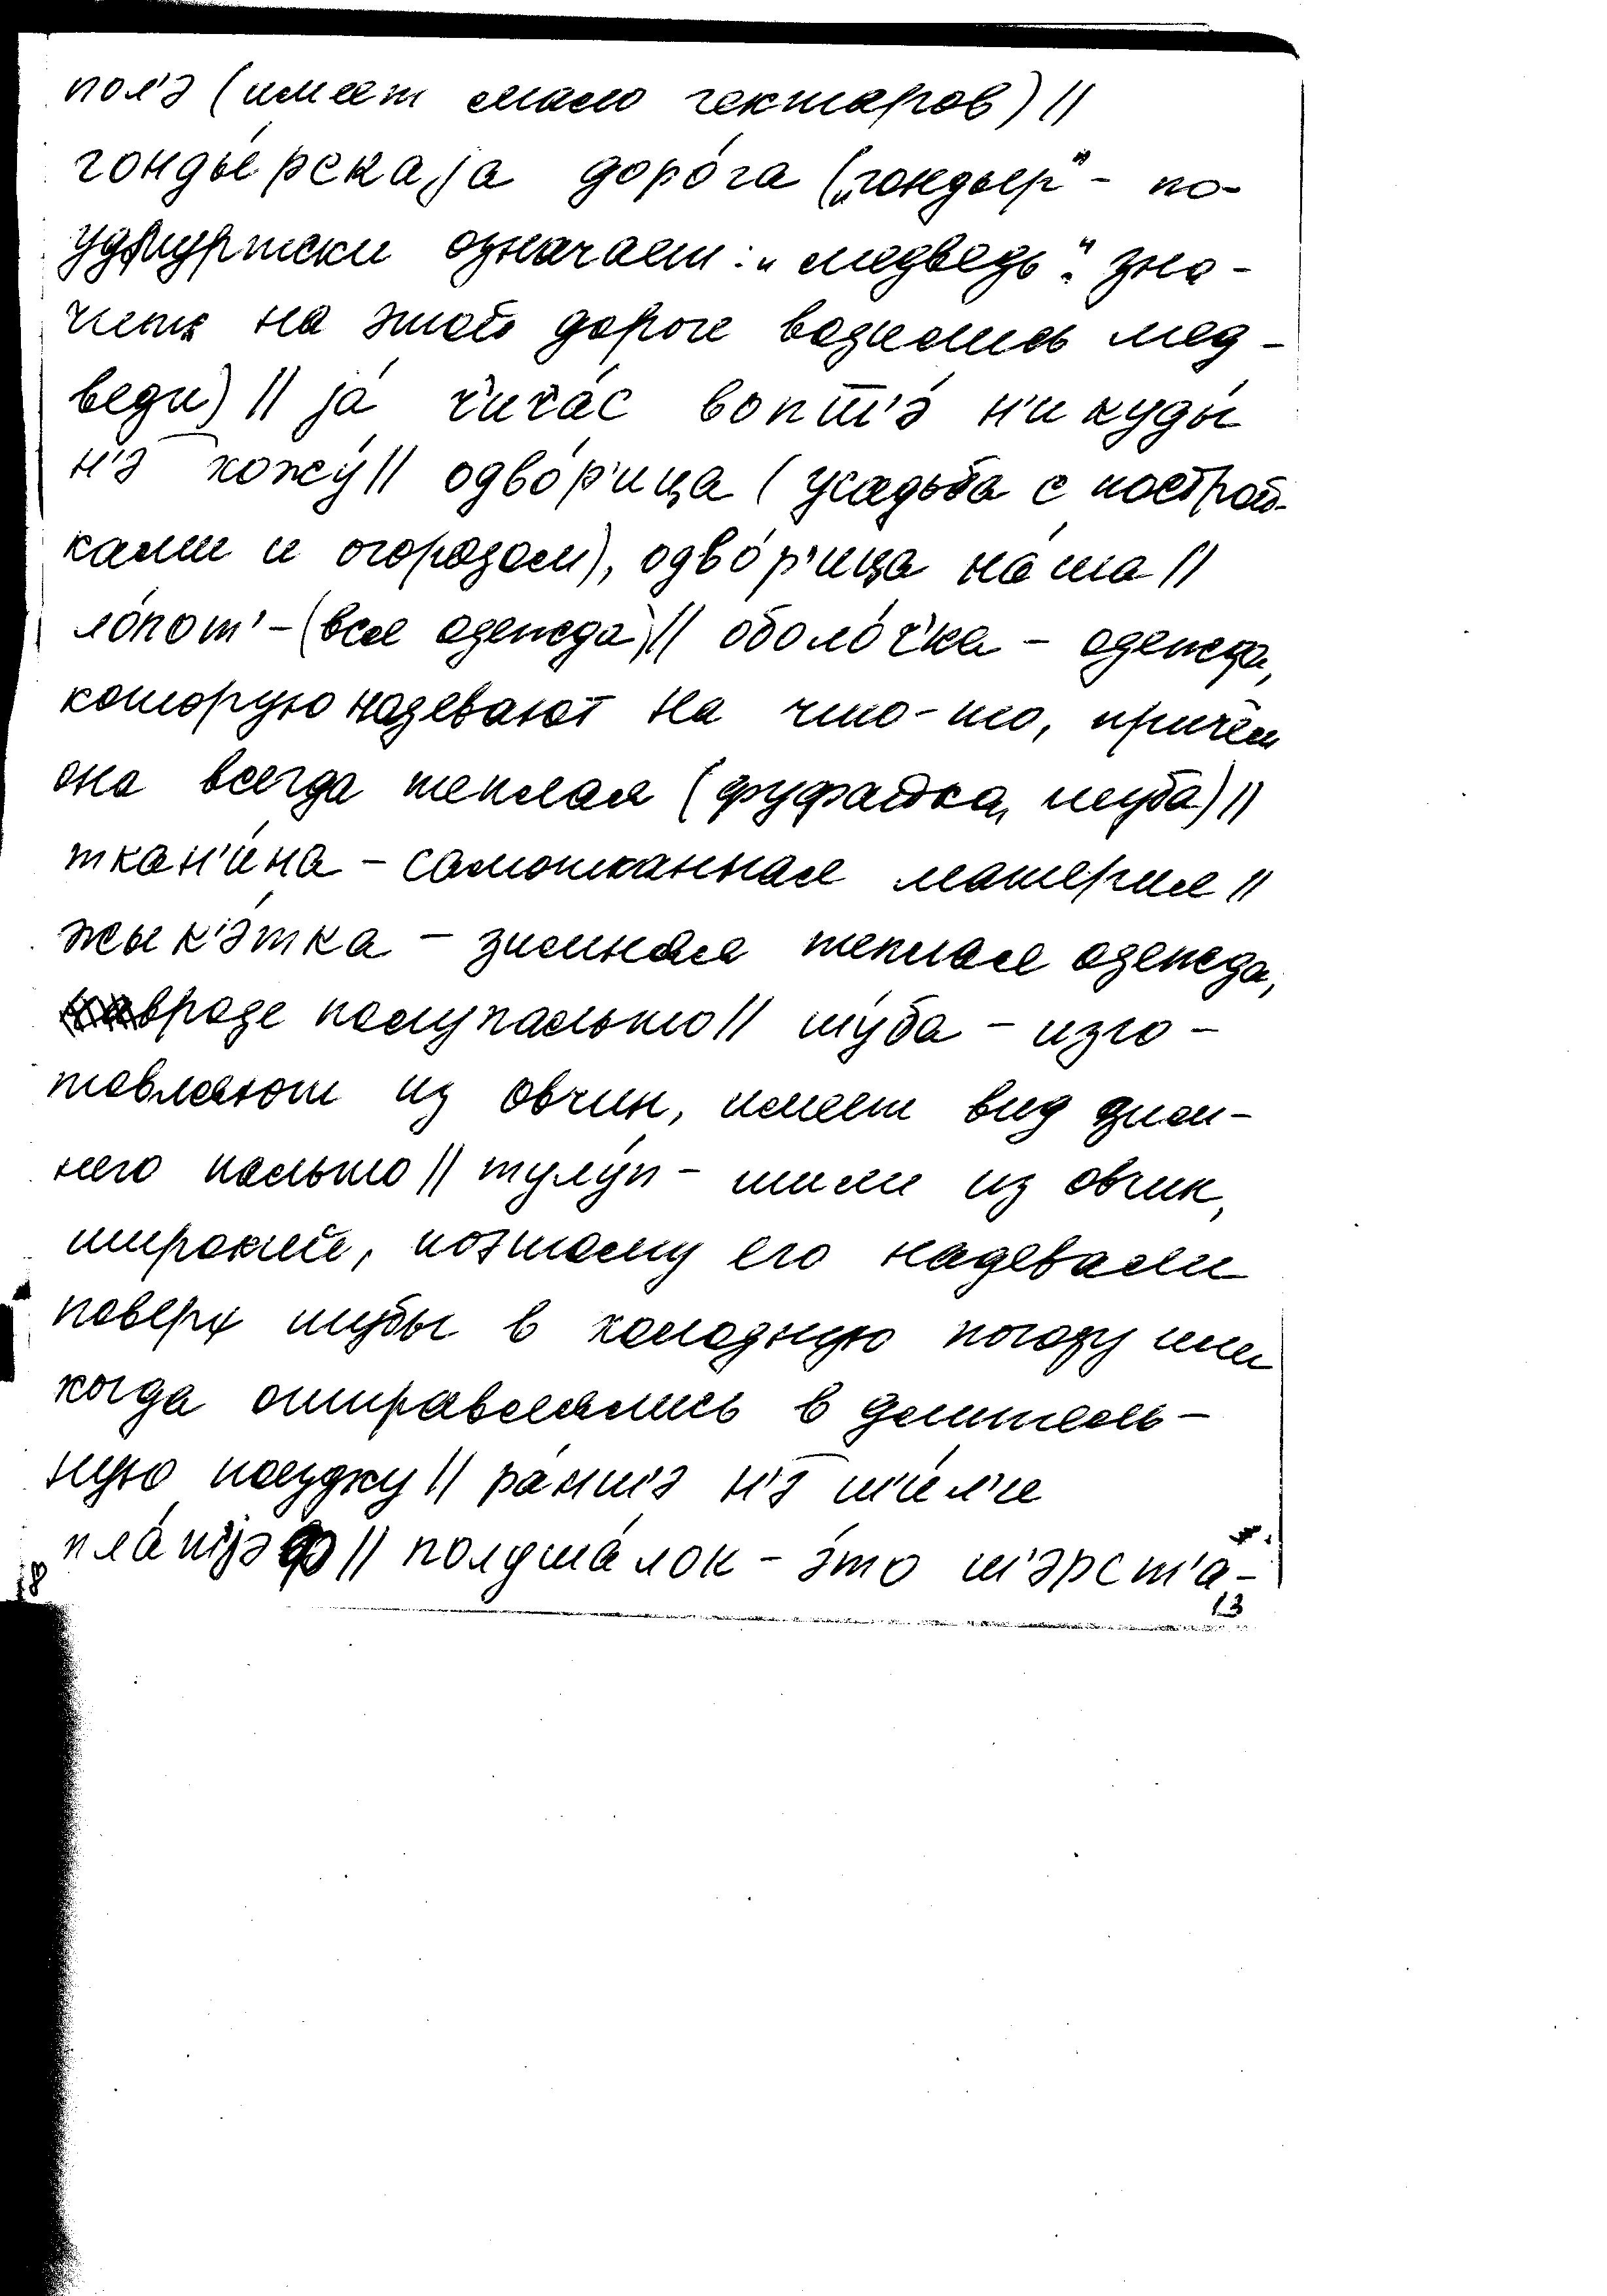 пол'э (имеет мало гектаров) ||
гонды́рскаjа доро́га („гондыр“ - по-
удмуртски означает: „медведь“. зна-
чит на этой дороге водились мед-
веди) || jа́ ч'ич'а́с вопш'э́ н'икуды́
н'э хожу́ || одво́р'ица (усадьба с построй-
ками и огородом), одво́р'ица на́ша ||
ло́пот' - (вся одежда) || оболо́ч'ка - одежда,
которую надевают на что-то, причём
она всегда теплая (фуфайка, шуба) ||
ткан'и́на - самотканная материя ||
жык'э́тка - зимняя теплая одежда,
вроде полупальто || шу́ба - изго-
товляют из овчин, имеет вид зим-
него пальто || тулу́п - шили из овчин,
широкий, поэтому его надевали
поверх шубы в холодную погоду или
когда отправлялись в длитель-
ную поездку || ра́н'ш'э н'э ш'и́л'и
|| полуша́лок - э́то ш'эрст'а-
18
13